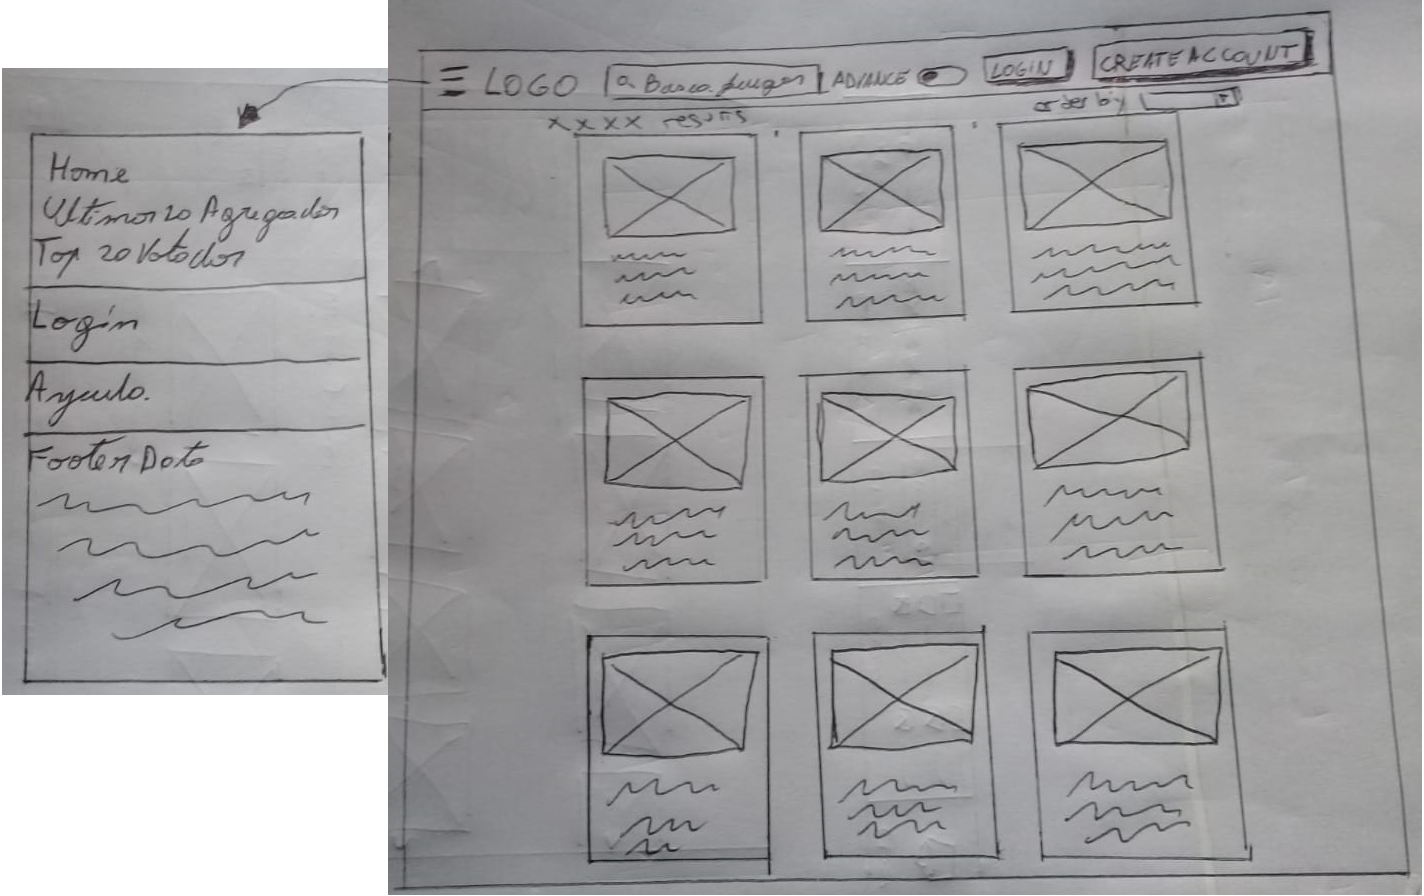 Home
Ultimos 20 Agregados
Top 20 Votados
Login
Ayuda.
Footer Data
LOGO
Busca Juegos
ADVANCE
LOGIN
CREATE ACCOUNT
XXXX results
order by